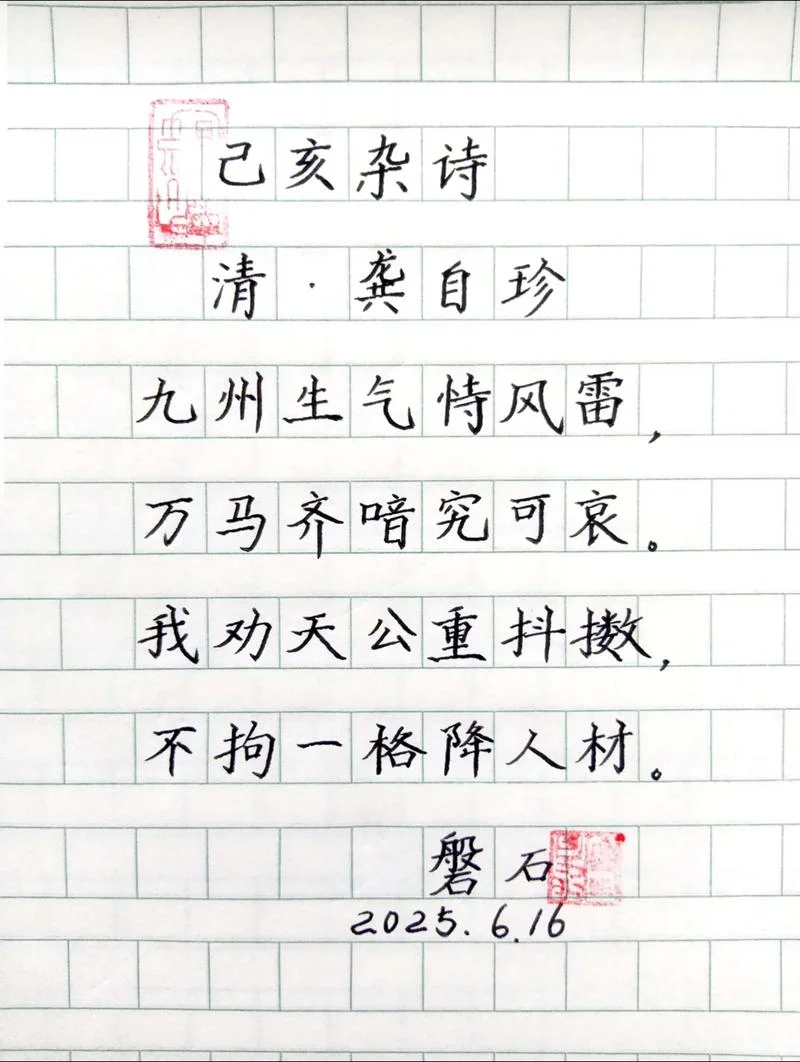 己亥杂诗
清·龚自珍
九州生气恃风雷，
万马齐喑究可哀。
我劝天公重抖擞，
不拘一格降人材。
磐石
2025.6.16